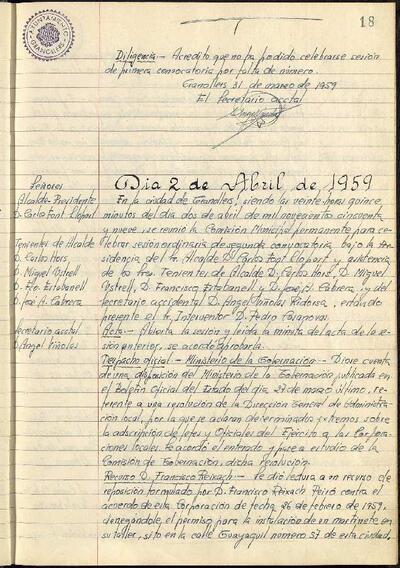 18
AYUNTAMIENTO
GRANOLLERS
Diligencia.- Acredito que no ha podido celebrarse sesión
de primera convocatoria por falta de número.
Granollers 31 de marzo de 1959
El Secretario acctal
Dia 2 de Abril de 1959
Señores
Alcalde-Presidente
D. Carlos Font Llopart
Tenientes de Alcalde
D. Carlos Hors
D. Miguel Ustrell
D. Fco Estabanell
D. José A. Cabrera
Secretario acctal
D. Angel Viñolas
En la ciudad de Granollers, siendo las veinte horas quince
minutos del día dos de abril de mil novecientos cincuenta
y nueve, se reunió la Comisión Municipal permanente para ce-
lebrar sesión ordinaria de segunda convocatoria, bajo la Pre-
sidencia del Sr. Alcalde D. Carlos Font Llopart, y asistencia
de los Sres. Tenientes de Alcalde D. Carlos Hors, D. Miguel
Ustrell, D. Francisco Estabanell y D. José A. Cabrera, y del
Secretario accidental D. Angel Viñolas Ridorsa, estando
presente el Sr. Interventor D. Pedro Casanovas.
Acta.- Abierta la sesión y leída la minuta del acta de la se-
sión anterior, se acordó aprobarla.
Despacho oficial - Ministerio de la Gobernación.- Diose cuenta
de una disposición del Ministerio de la Gobernación publicada en
el Boletín Oficial del Estado del día 27 de marzo último, re-
ferente a una resolución de la Dirección General de Administra-
ción local, por la que se aclaran determinados extremos sobre
la adscripción de Jefes y Oficiales del Ejército a las Corpora-
ciones locales. Se acordó el enterado y pase a estudio de la
Comisión de Gobernación, dicha resolución.
Recurso D. Francisco Reixach.- Se dió lectura a un recurso de
reposición formulado por D. Francisco Reixach Peiró contra el
acuerdo de esta Corporación de fecha 26 de febrero de 1959,
denegándole el permiso para la instalación de un martinete en
su taller, sito en la calle Guayaquil número 57 de esta ciudad,